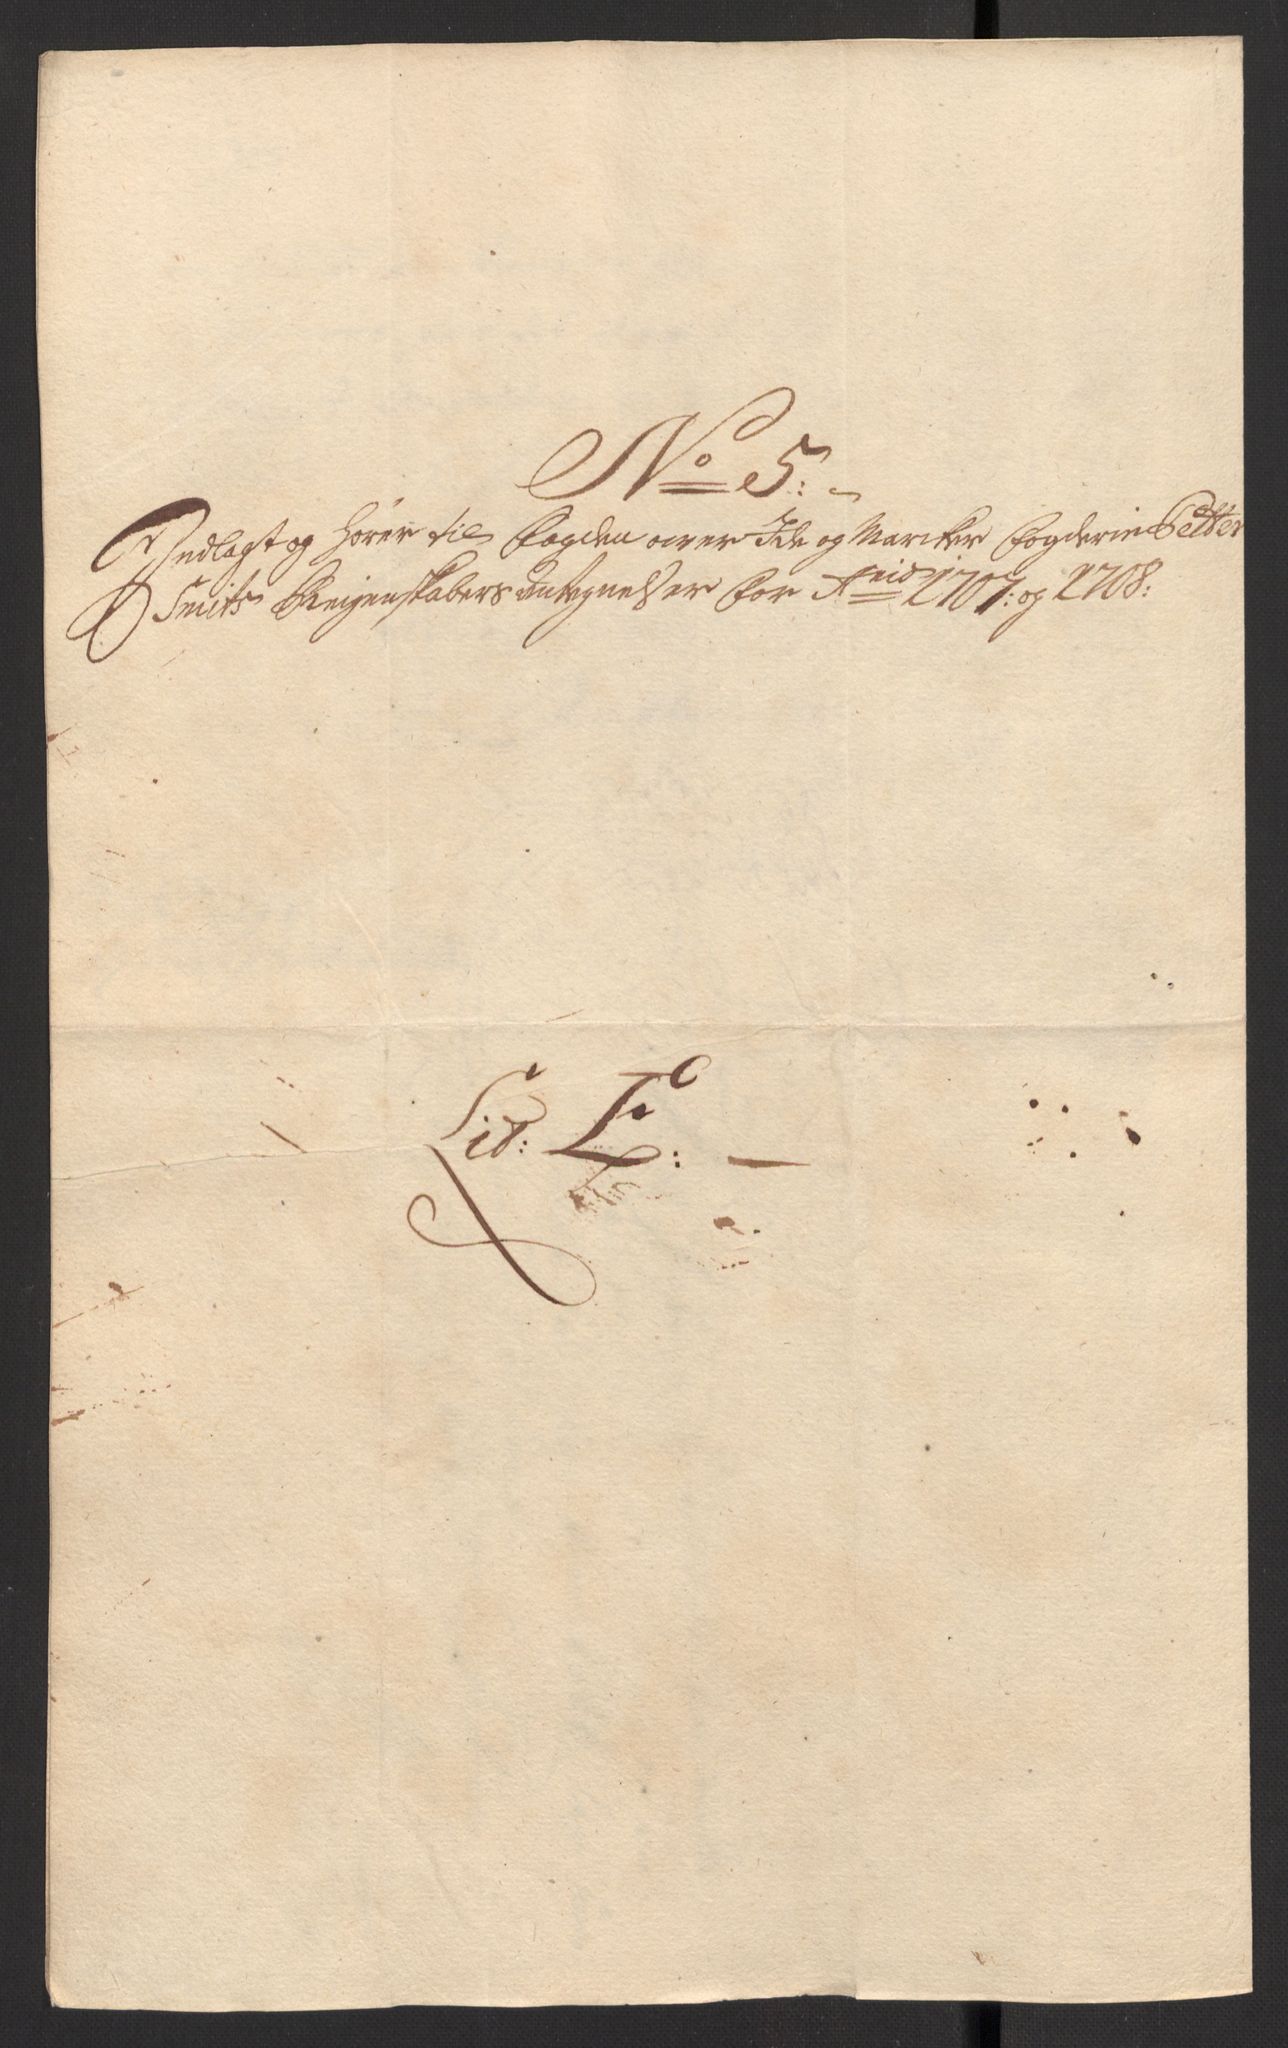 No 5:
Indlagt og hører til Fogden over Ide og Marcker Fogderie Petter
Smits Reigenskabers Antegnelser for A 1707: og 1708:
Lit: E: